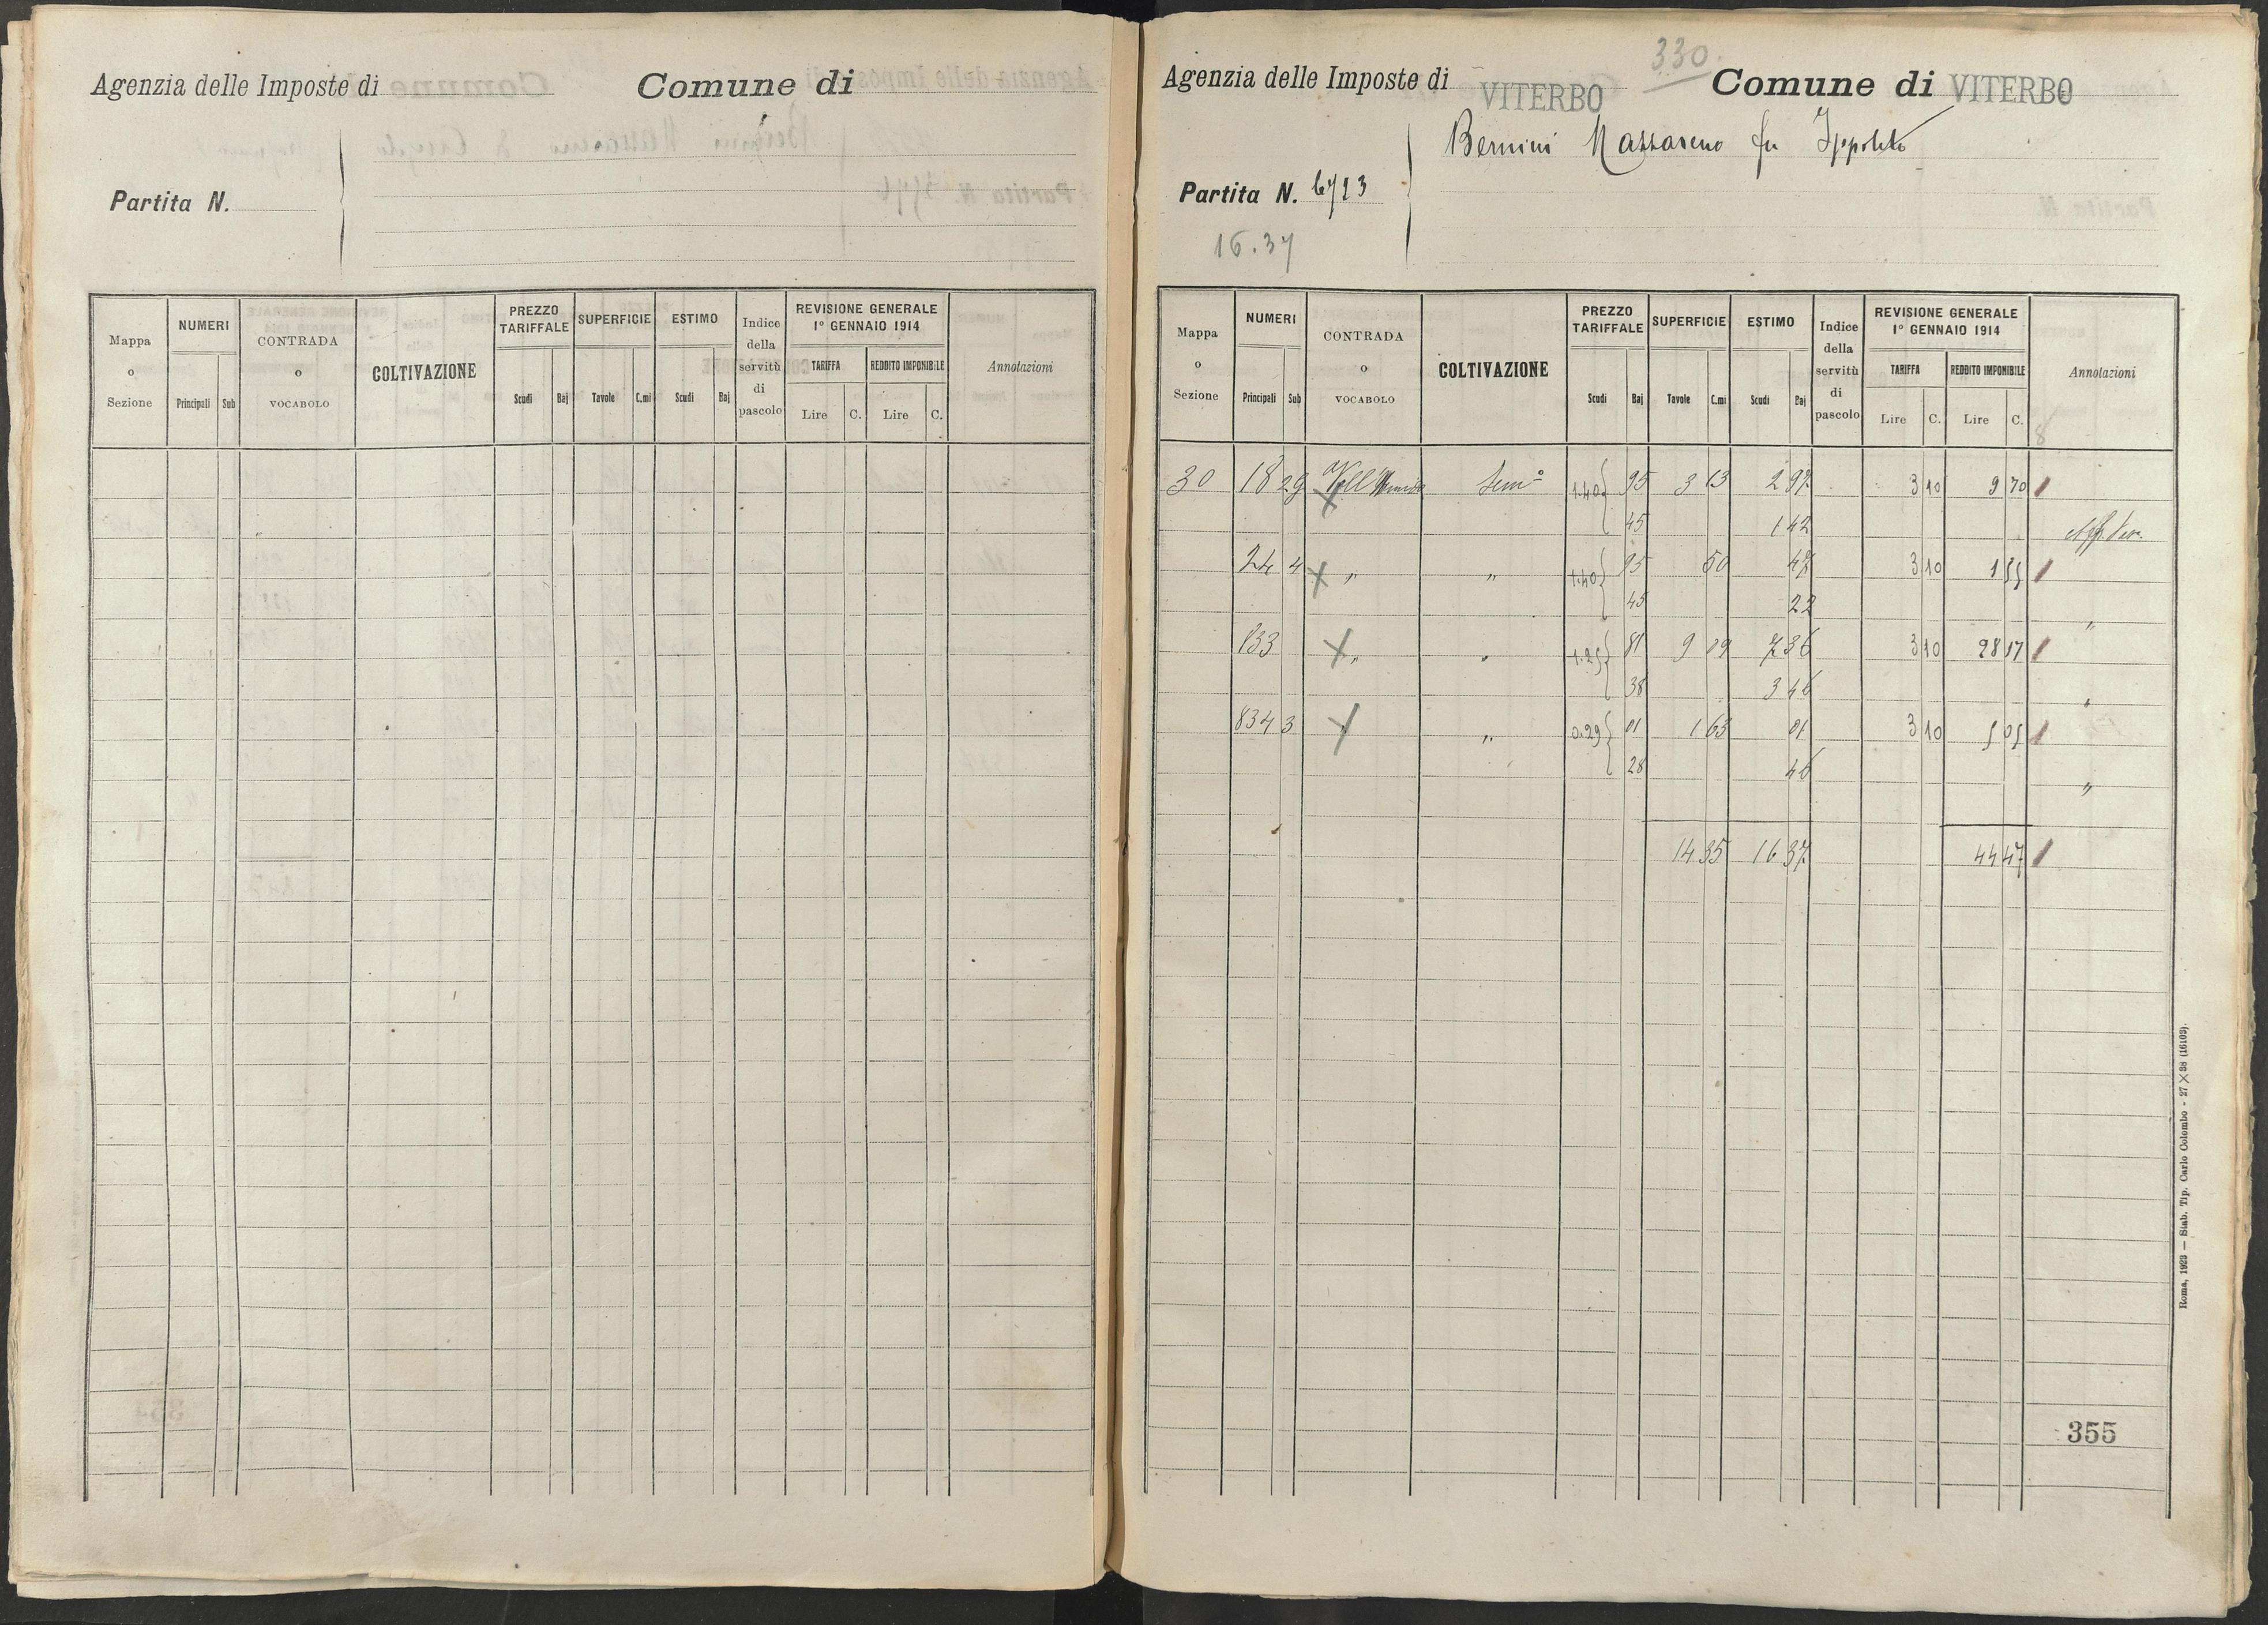 Agenzia delle Imposte di
Comune di
Partita N.
Mappa o Sezione
NUMERI
Principali Sub
CONTRADA o VOCABOLO
COLTIVAZIONE
PREZZO TARIFFALE
Scudi Baj
SUPERFICIE
Tavole C.mi
ESTIMO
Scudi Baj
Indice della servitù di pascolo
REVISIONE GENERALE
1° GENNAIO 1914
TARIFFA
Lire C.
REDDITO IMPONIBILE
Lire C.
Annotazioni
330
Agenzia delle Imposte di VITERBO
Comune di VITERBO
Bernini Nazzareno fu Ippolito
Partita N. 6723
16.37
Mappa o Sezione
NUMERI
Principali Sub
CONTRADA o VOCABOLO
COLTIVAZIONE
PREZZO TARIFFALE
Scudi Baj
SUPERFICIE
Tavole C.mi
ESTIMO
Scudi Baj
Indice della servitù di pascolo
REVISIONE GENERALE
1° GENNAIO 1914
TARIFFA
Lire C.
REDDITO IMPONIBILE
Lire C.
Annotazioni
8
30 18 29 Sem° 1.40 95 3 13 2 97 3 10 9 70
45 1 42
24 4 " " 1.40 95 50 47 3 10 1 55 "
45 22
833 " " 1.25 81 9 09 7 36 3 10 28 17 "
38 3 46
834 3 " 0.29 01 1 63 01 3 10 5 05 "
28 46
14 35 16 37 44 47
355
Roma, 1923 — Stab. Tip. Carlo Colombo - 27 X 38 (16103).